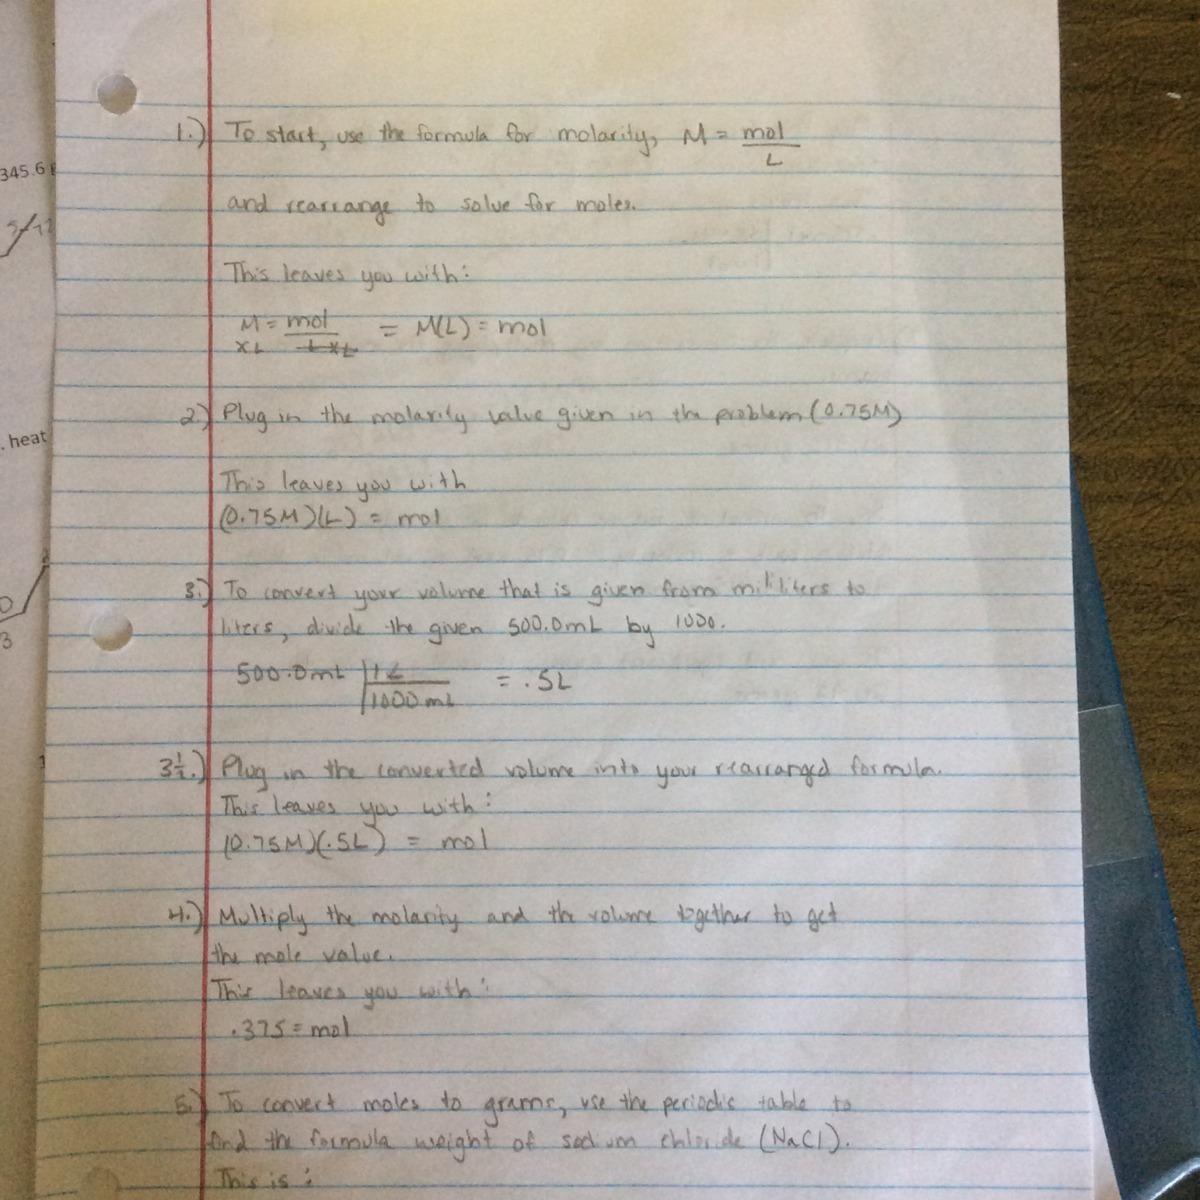 345.6 g
. heat
3
1.) To start, use the formula for molarity, M = mol
L
and rearrange to solve for moles.
This leaves you with:
M = mol = M(L) = mol
XL L XL
2.) Plug in the molarity value given in the problem (0.75M)
This leaves you with
(0.75M)(L) = mol
3.) To convert your volume that is given from milliliters to
liters, divide the given 500.0mL by 1000.
500.0mL 1L = .5L
1000 mL
3½.) Plug in the converted volume into your rearranged formula.
This leaves you with:
(0.75M)(.5L) = mol
4.) Multiply the molarity and the volume together to get
the mole value.
This leaves you with:
.375 = mol
5.) To convert moles to grams, use the periodic table to
find the formula weight of sodium chloride (NaCl).
This is: